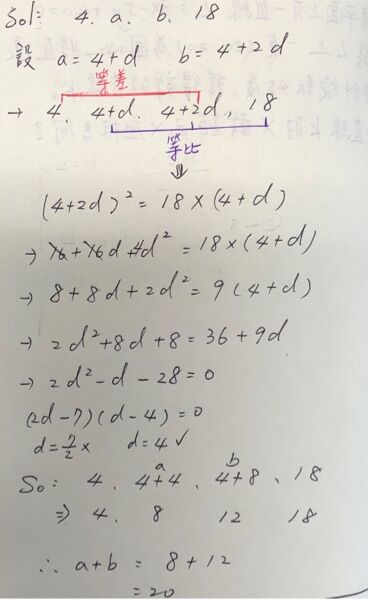 Sol: 4. a. b. 18
設 a=4+d b=4+2d
等差
→ 4. 4+d. 4+2d, 18
等比
⇓
(4+2d)² = 18×(4+d)
→ 16+16d+4d² = 18×(4+d)
→ 8+8d+2d² = 9(4+d)
→ 2d²+8d+8 = 36+9d
→ 2d²-d-28=0
(2d-7)(d-4)=0
d=7/2 × d=4 ✓
a b
So: 4. 4+4. 4+8、18
⇒ 4. 8 12 18
∴ a+b = 8+12
=20